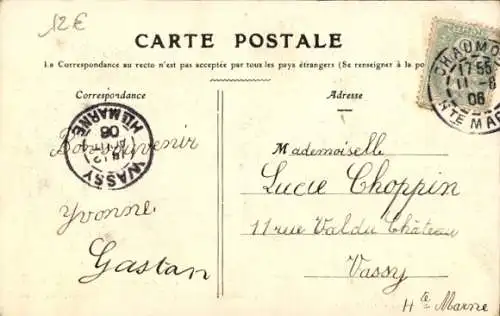 12€
CARTE POSTALE
La Correspondance au recto n'est pas acceptée par tous les pays étrangers (Se renseigner à la po
Correspondance
Bon Souvenir
Yvonne
Gastan
Adresse
Mademoiselle
Lucie Choppin
11 rue Val du Château
Vassy
Hte Marne
CHAUMO
17 55
11 - 8
06
HTE MAR
WASSY
06
HTE MARNE